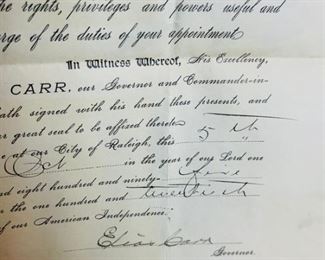 he rights, privileges and powers useful and
rge of the duties of your appointment
In Witness Whereof, His Excellency,
CARR, our Governor and Commander-in-
ath signed with his hand these presents, and
r great seal to be affixed thereto
e at our City of Raleigh, this 5th
Oct in the year of our Lord one
nd eight hundred and ninety-five
r the one hundred and twentieth
of our American Independence.
Elias Carr
Governor.